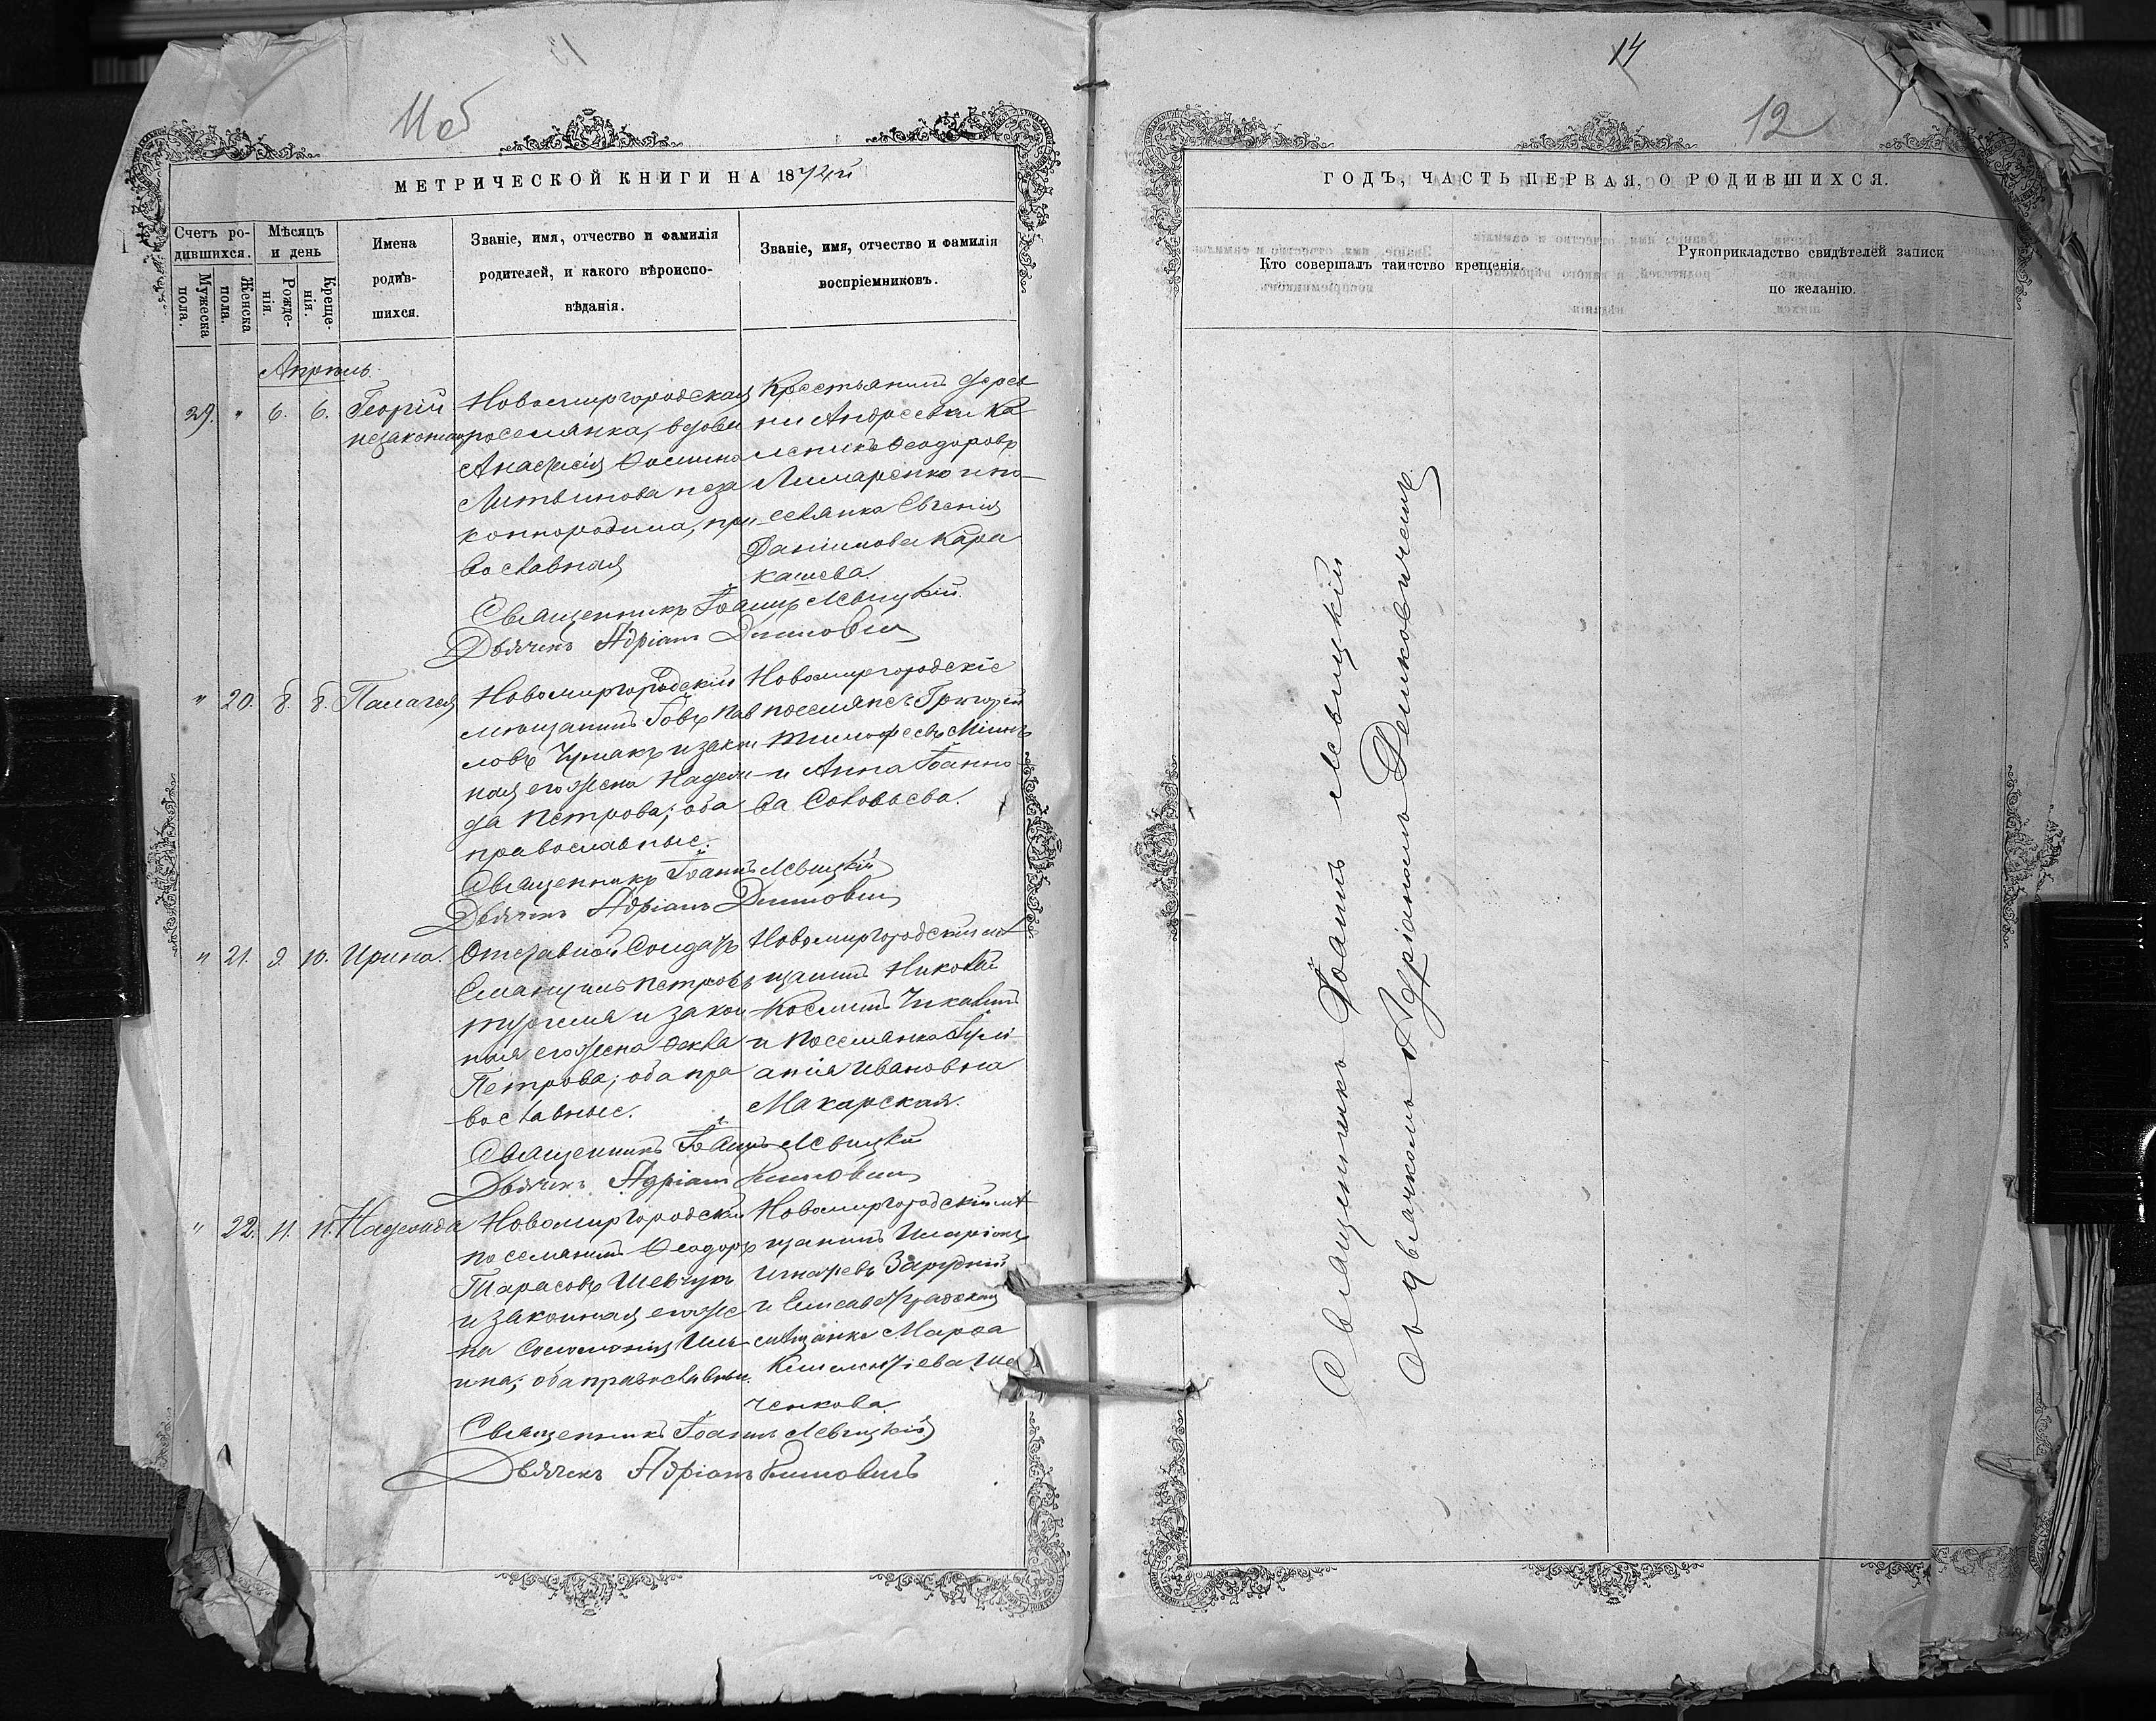 14
12
МЕТРИЧЕСКОЙ КНИГИ НА 1874й
Счетъ ро-
дившихся.
Мужеска
пола.
Женска
пола.
Мѣсяцъ
и день
Рожде-
нія
Креще-
нія.
Имена
родив-
шихся.
Званіе, имя, отчество и фамилія
родителей, и какого вѣроиспо-
вѣданія.
Званіе, имя, отчество и фамилія
воспріемниковъ.
Апрѣль
29. " 6. 6. Георгій
Новомиргородская
поселянка, вдова
Анастасія
Литвинова неза
коннородила, пра
вославная
Крестьянинъ дерев
ни Андреевки Ка
леникъ Ѳеодоровъ
Лимаренко и по-
селянка Евгенія
Даніилова Кара
кашева.
Священникъ Іоаннъ Левицкій.
Дьячекъ Адріанъ
" 20. 8. 8. Палагея
Новомиргородскій
мѣщанинъ Іовъ Пав
ловъ Чумакъ и закон
ная его жена Надеж
да Петрова; оба
православные.
Новомиргородскіе
поселяне: Григорій
Тимофеевъ
и Анна Іоанно
ва Соловьева.
Священникъ Іоаннъ Левицкій
Дьячекъ Адріанъ
" 21. 9. 10. Ирина.
Отставной Солдатъ
Емануилъ Петровъ
и закон
ная его жена Ѳекла
Петрова; оба пра
вославные.
Новомиргородскій мѣ
щанинъ Николай
Косминъ
и поселянка Іулі
анія Ивановна
Макарская.
Священникъ Іоаннъ Левицкій
Дьячекъ Адріанъ
" 22. 11. 11. Надежда
Новомиргородскій
поселянинъ Ѳеодоръ
Тарасовъ Шевчукъ
и законная его же
на Соломонія Иль
ина; оба православные.
Новомиргородскій мѣ
щанинъ Иларіонъ
Игнатьевъ Зарудній
и Елисаветградская
мѣщанка Марѳа
Климентіева
ченкова.
Священникъ Іоаннъ Левицкій
Дьячекъ Адріанъ
ГОДЪ, ЧАСТЬ ПЕРВАЯ, О РОДИВШИХСЯ.
Кто совершалъ таинство крещенія.
Рукоприкладство свидѣтелей записи
по желанію.
Священникъ Іоаннъ Левицкій
съ дьячкомъ Адріаномъ